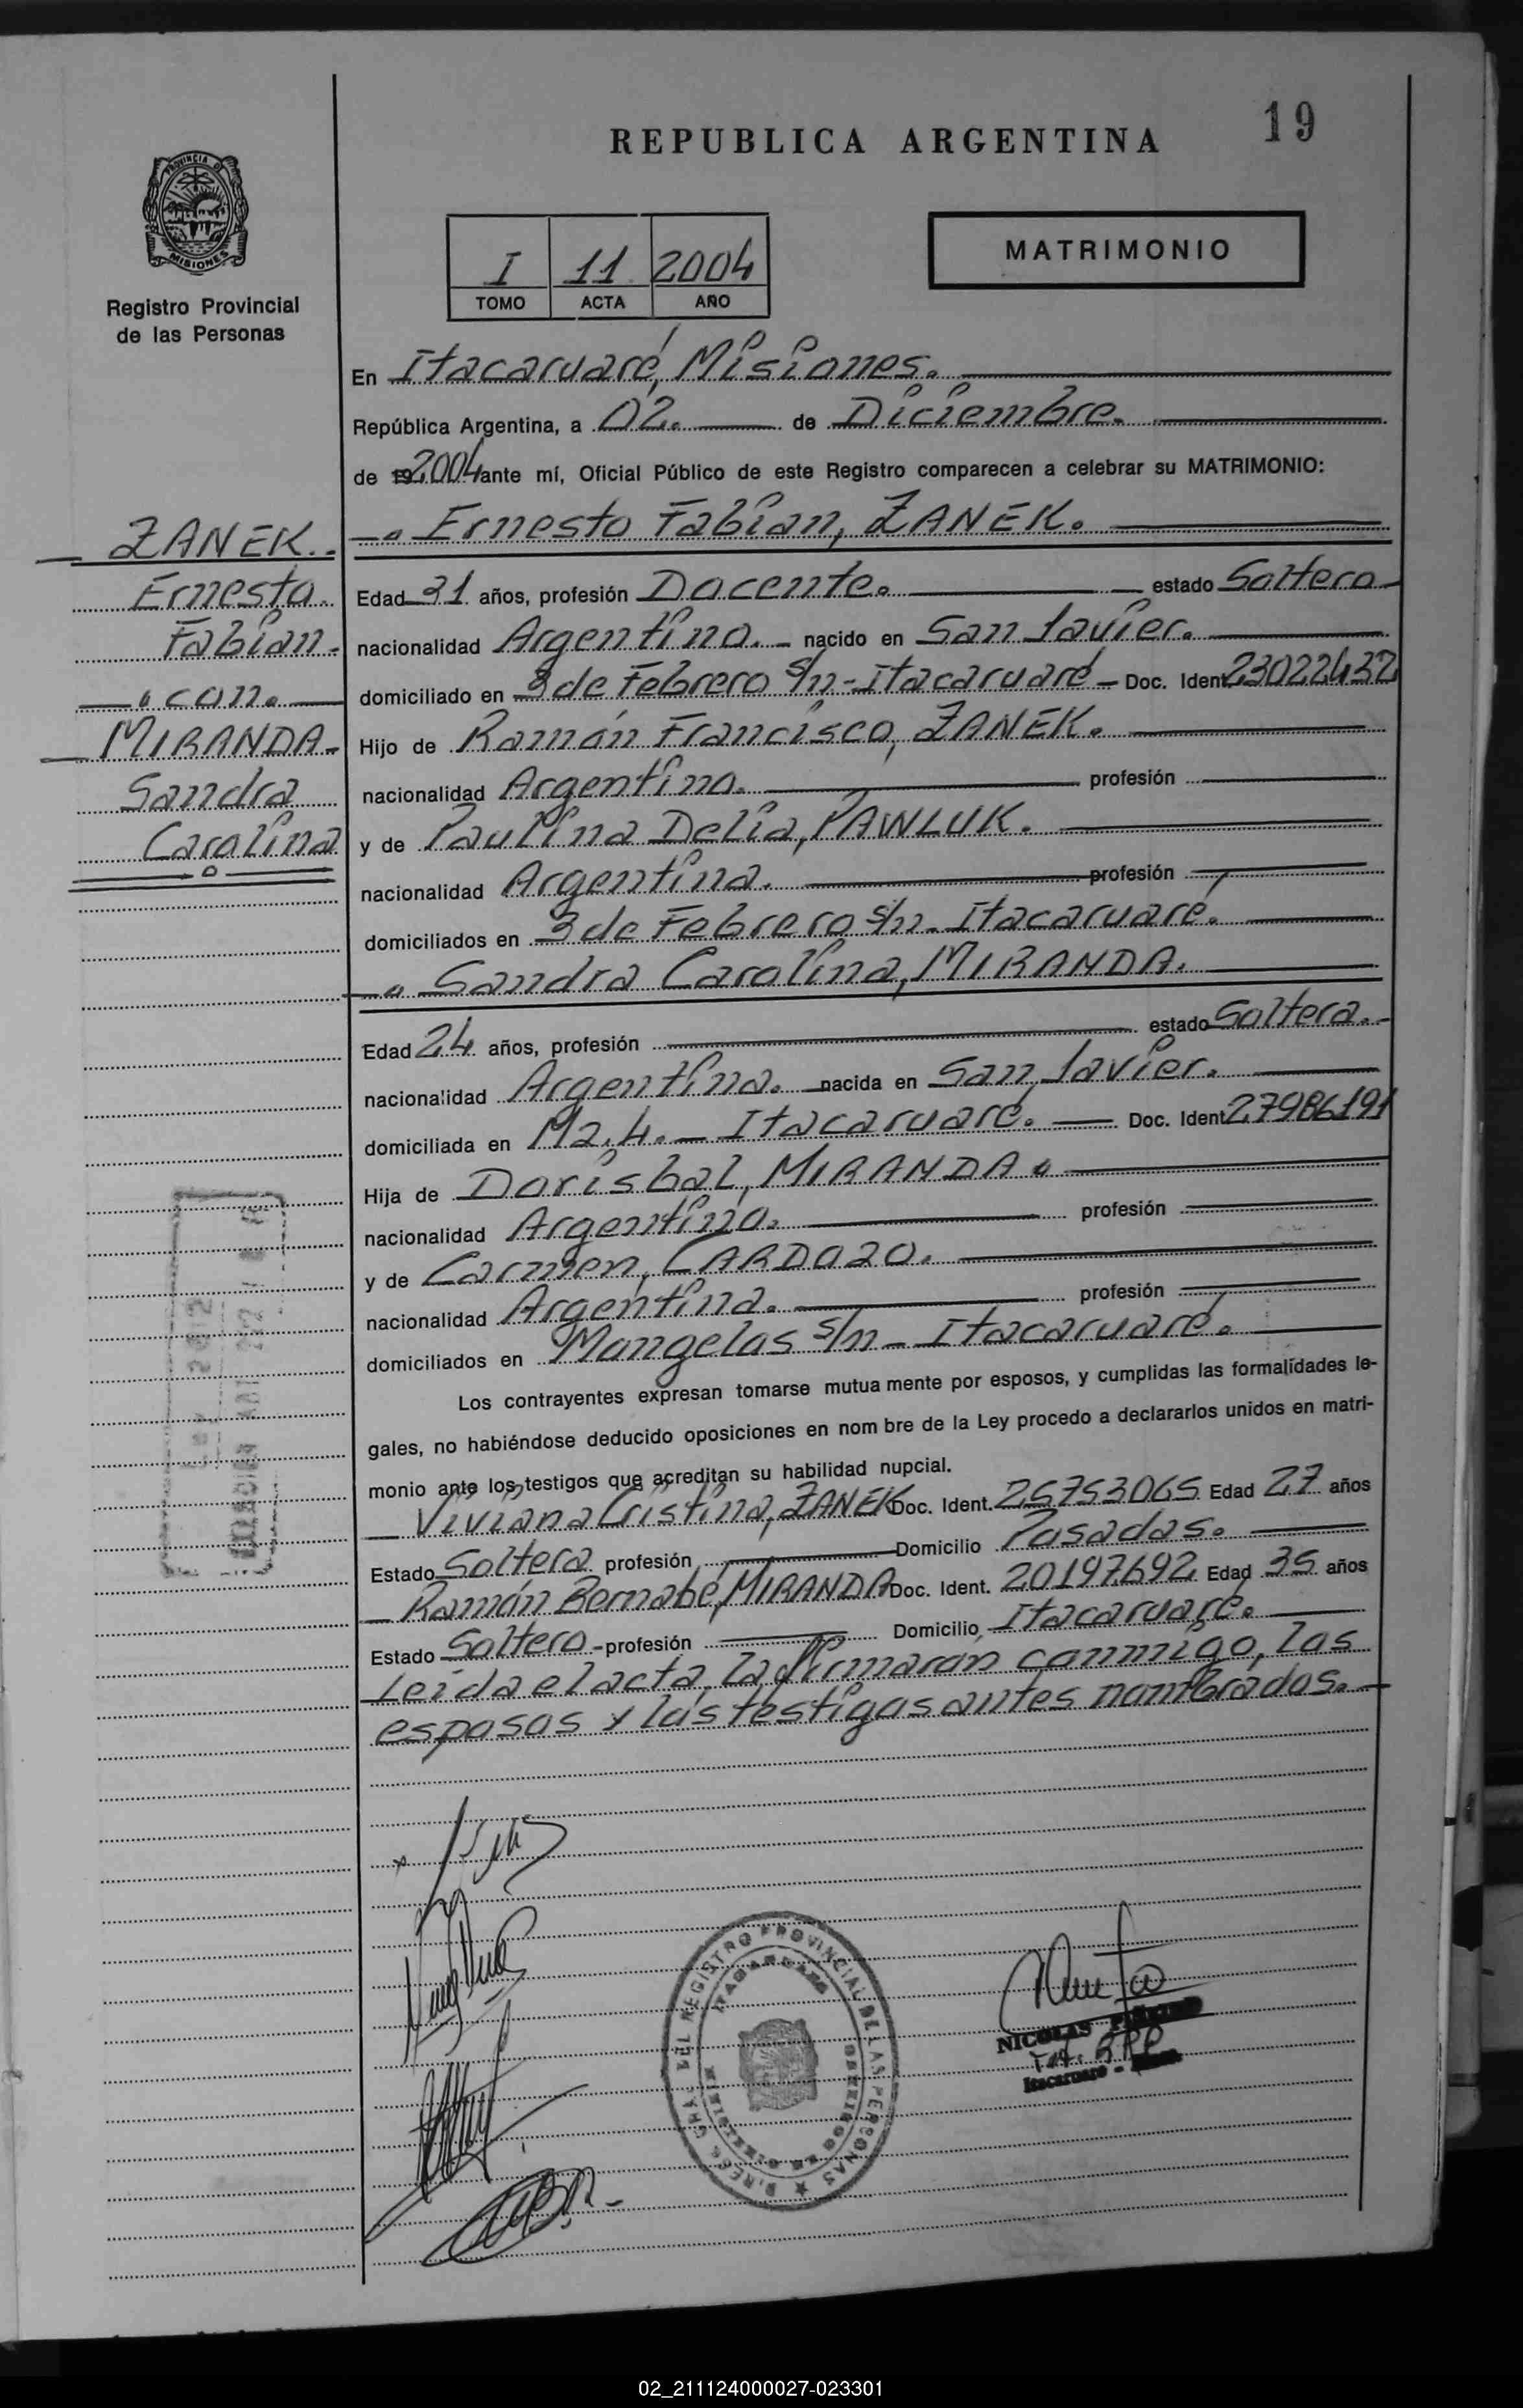 19
REPUBLICA ARGENTINA
PROVINCIA DE
MISIONES
Registro Provincial
de las Personas
I 11 2004
TOMO ACTA AÑO
MATRIMONIO
En Itacaruaré, Misiones.
República Argentina, a 02. de Diciembre.
de 19 2004 ante mí, Oficial Público de este Registro comparecen a celebrar su MATRIMONIO:
ZANEK.
Ernesto
Fabian
con
MIRANDA
Sandra
Carolina
Ernesto Fabian, ZANEK.
Edad 31 años, profesión Docente. estado Soltero
nacionalidad Argentino. nacido en San Javier.
domiciliado en 3 de Febrero s/n - Itacaruaré - Doc. Ident. 23022432
Hijo de Ramón Francisco, ZANEK.
nacionalidad Argentino. profesión
y de Paulina Delia, PAWLUK.
nacionalidad Argentina. profesión
domiciliados en 3 de Febrero s/n. Itacaruaré.
Sandra Carolina, MIRANDA.
Edad 24 años, profesión estado Soltera.
nacionalidad Argentina. nacida en San Javier.
domiciliada en Mz. 4. - Itacaruaré. Doc. Ident. 27986191
Hija de Dorisbal, MIRANDA.
nacionalidad Argentino. profesión
y de Carmen, CARDOZO.
nacionalidad Argentina. profesión
domiciliados en Mangelos s/n - Itacaruaré.
Los contrayentes expresan tomarse mutua mente por esposos, y cumplidas las formalidades le-
gales, no habiéndose deducido oposiciones en nom bre de la Ley procedo a declararlos unidos en matri-
monio ante los testigos que acreditan su habilidad nupcial.
Viviana Cristina, ZANEK Doc. Ident. 25753065 Edad 27 años
Estado Soltera profesión Domicilio Posadas.
Ramón Bernabé, MIRANDA Doc. Ident. 20197692 Edad 35 años
Estado Soltero - profesión Domicilio Itacaruaré.
Leída el acta, la firmarán conmigo, los
esposos y los testigos antes nombrados.
REGISTRO PROVINCIAL DE LAS PERSONAS
ITACARUARE
NICOLAS
Itacaruare -
02_211124000027-023301